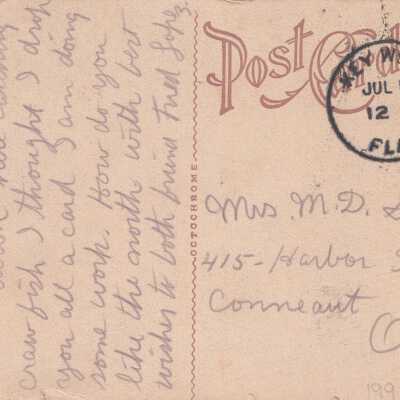 Post Card
KEY W
JUL
12
FL
OCTOCHROME
Mrs. M. D.
415 - Harbor
Conneaut
O
199
here
craw fish I thought I drop
you all a card I am doing
some work. How do you
like the north with best
wishes to both friend Fred Lopez